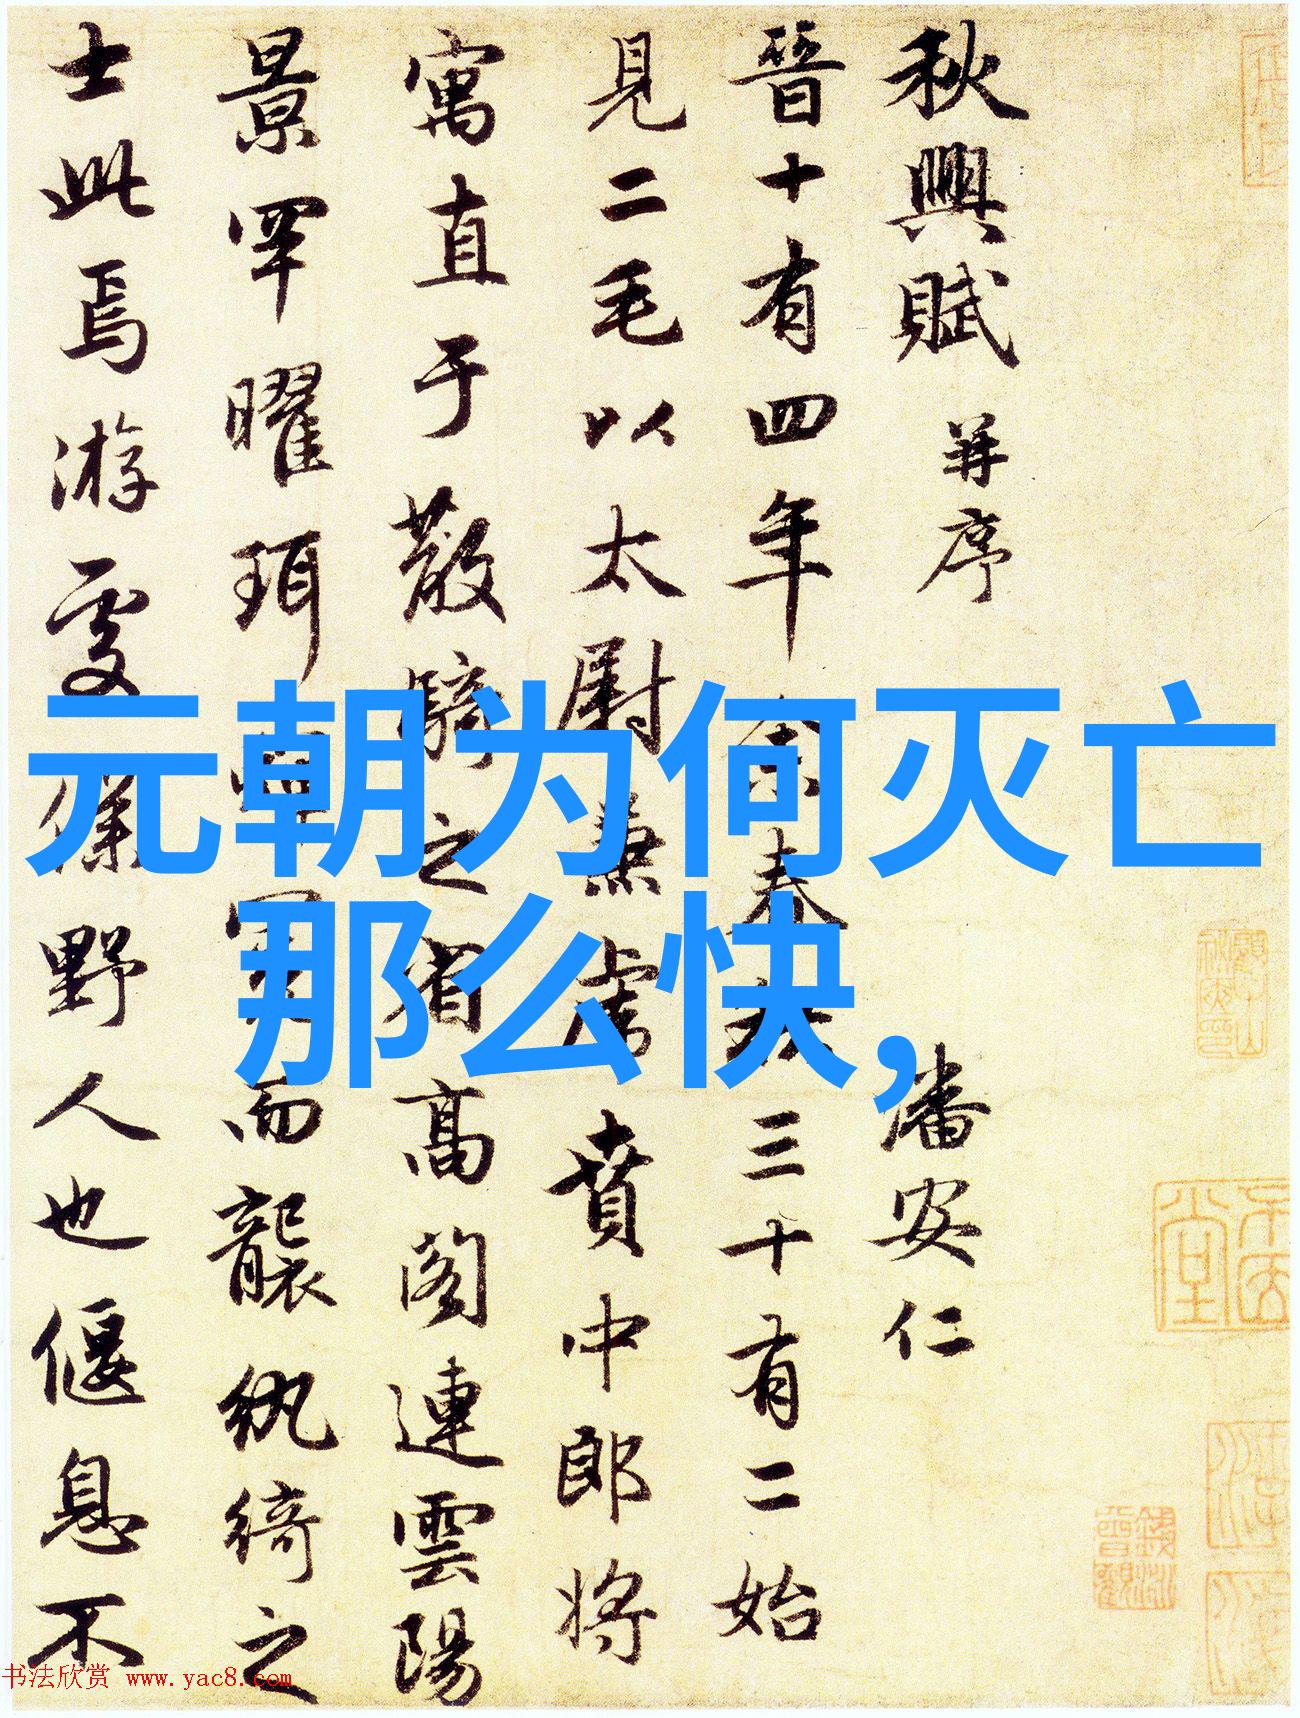 秋興賦 并序 潘安仁
晉十有四年余春秋三十有二始
見二毛以太尉兼虎賁中郎將
寓直于散騎之省高閣連雲陽
景罕曜珥蟬冕而襲紈綺之
士此焉游處僕野人也偃息不
元朝为何灭亡
那么快,
书法欣赏 www.yac8.com